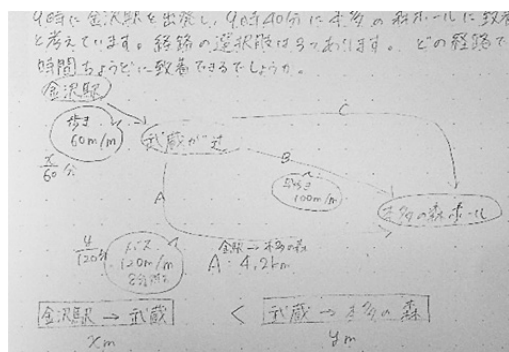 9時に金沢駅を出発し、9時40分に本多の森ホールに到着
と考えています。経路の選択肢は3つあります。どの経路で
時間ちょうどに到着できるでしょうか。
金沢駅
歩き
60m/m
武蔵が辻
C
x/60 分
B
早歩き
100m/m
A
本多の森ホール
y/120 分
バス
120m/m
金駅→本多の森
A:4.2km
金沢駅→武蔵 < 武蔵→本多の森
xm ym